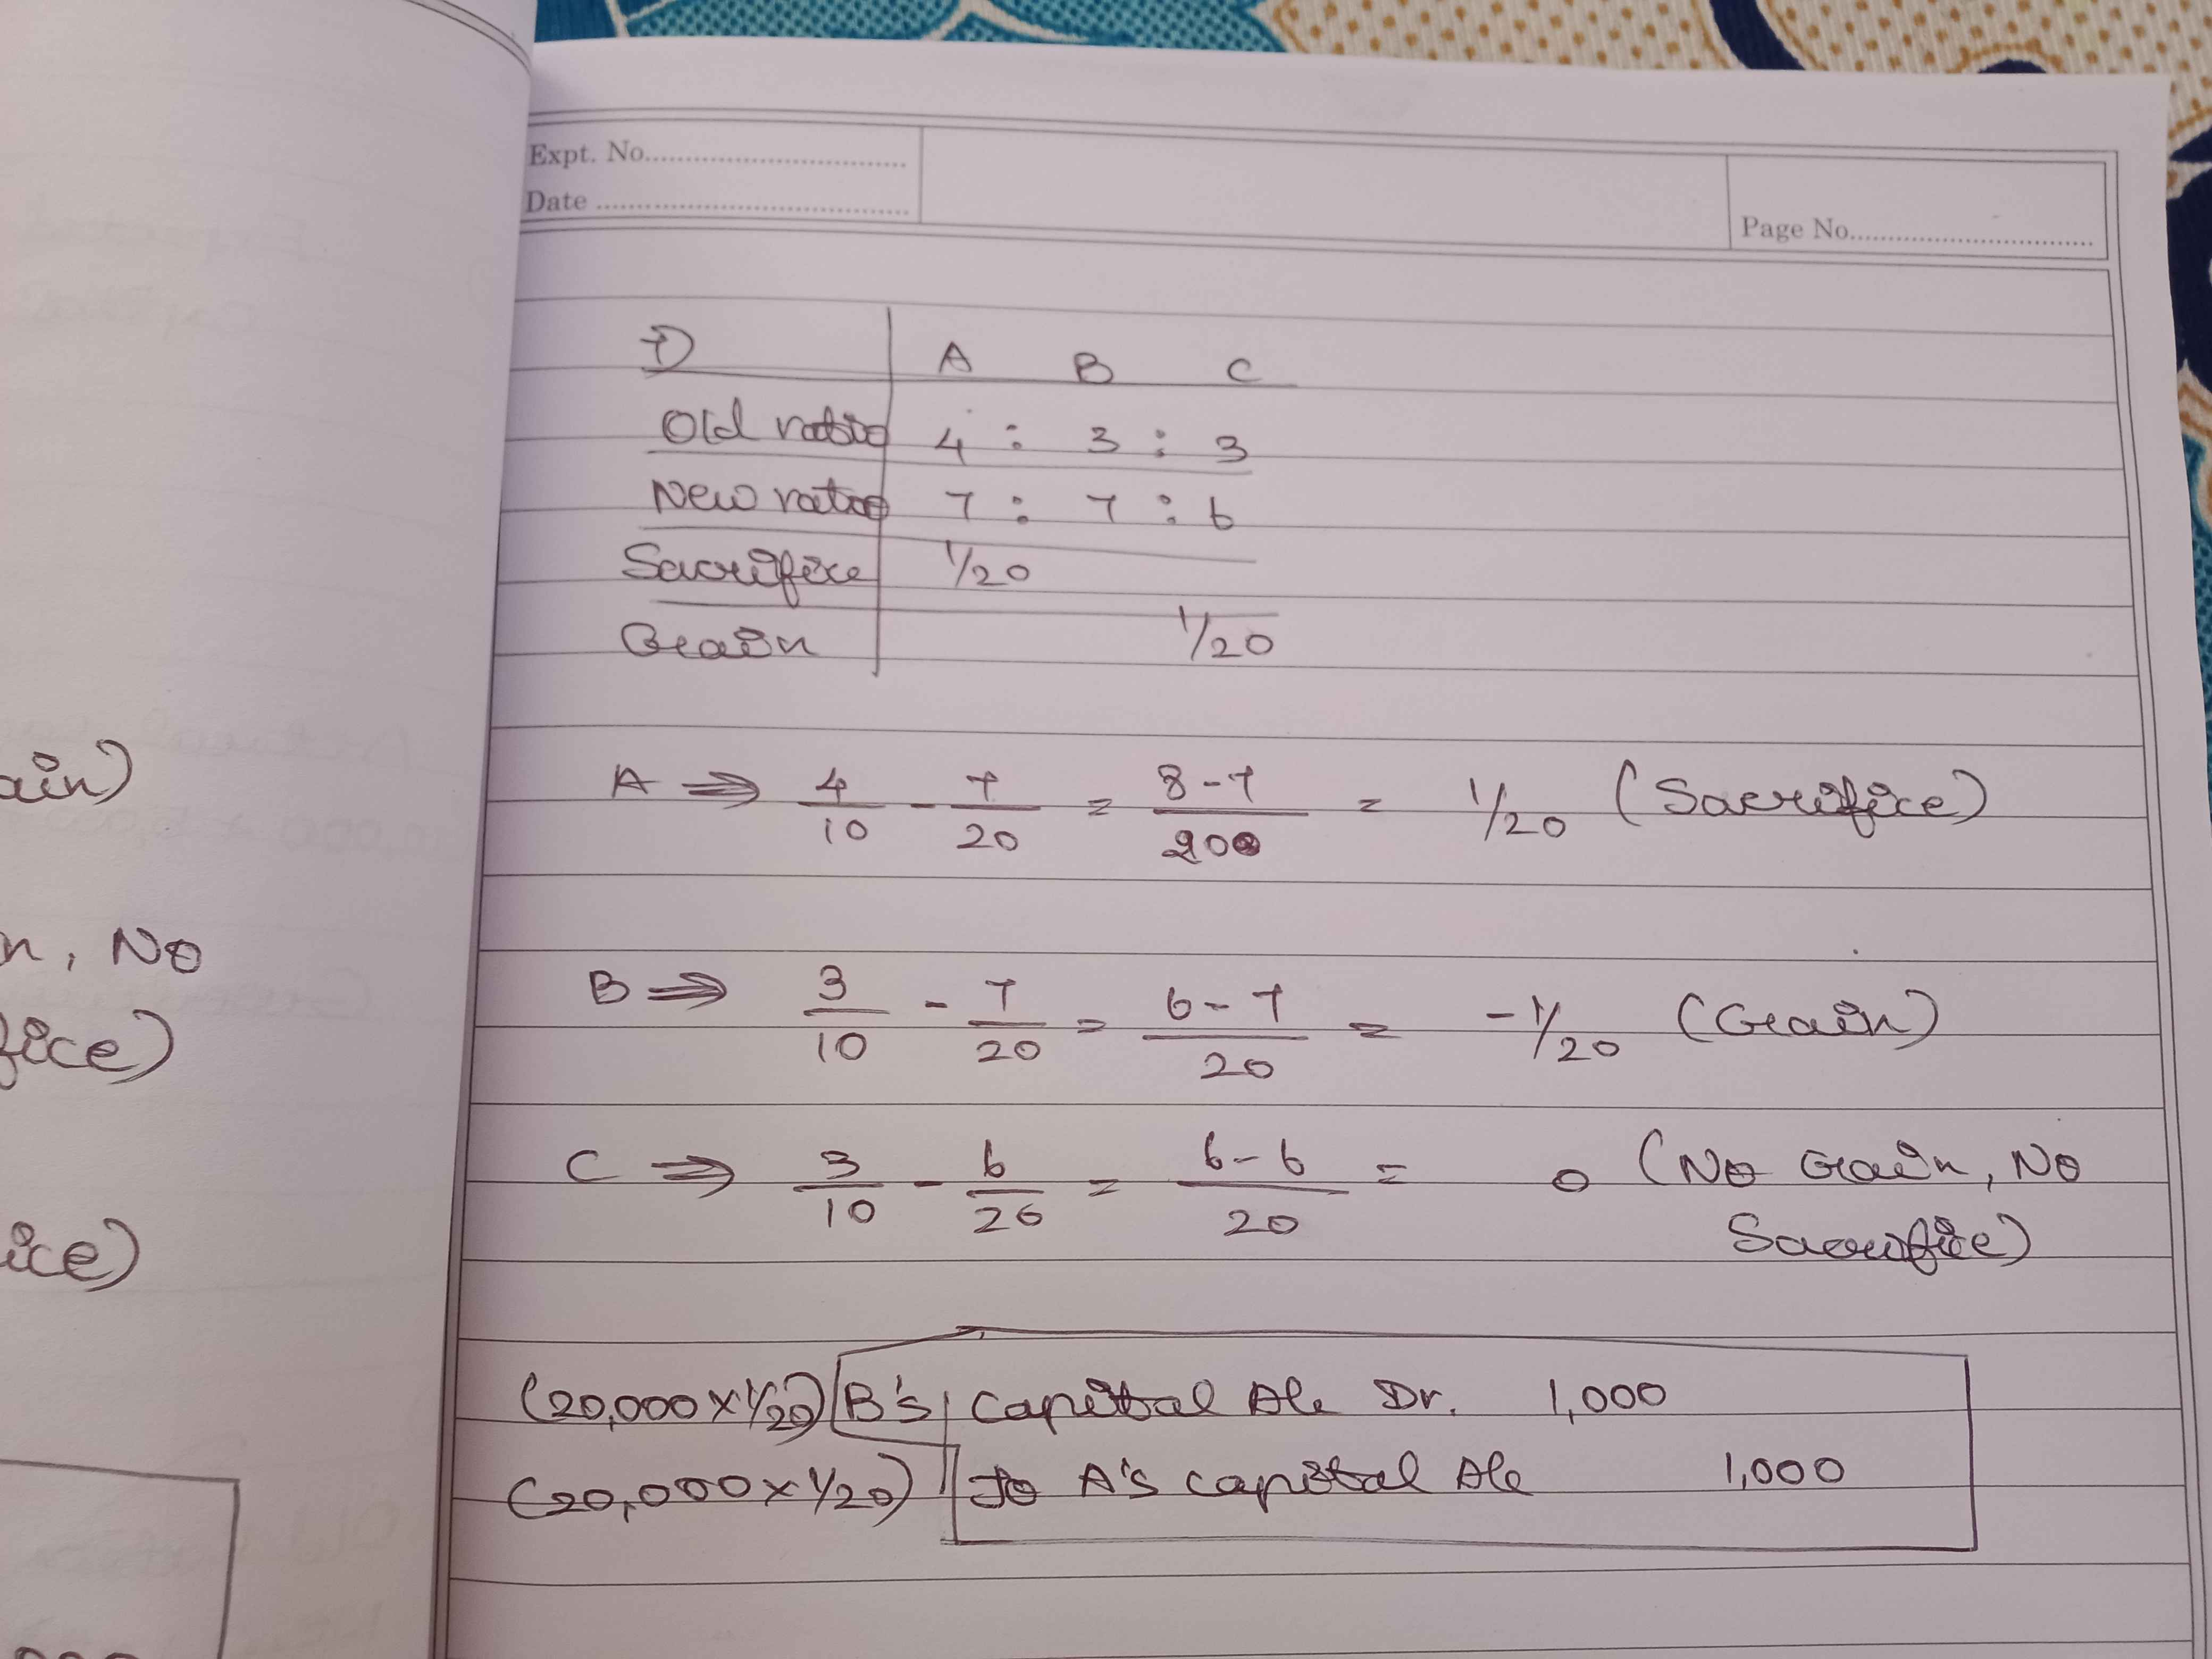 Expt. No.
Date
Page No.
7) A B C
Old ratio 4 : 3 : 3
New ratio 7 : 7 : 6
Sacrifice 1/20
Gain 1/20
A ⇒ 4/10 - 7/20 = 8-7/20 = 1/20 (Sacrifice)
B ⇒ 3/10 - 7/20 = 6-7/20 = -1/20 (Gain)
C ⇒ 3/10 - 6/20 = 6-6/20 = 0 (No Gain, No
Sacrifice)
(20,000 x 1/20) B's capital A/c Dr. 1,000
(20,000 x 1/20) To A's capital A/c 1,000
ain)
n, No
fice)
ice)